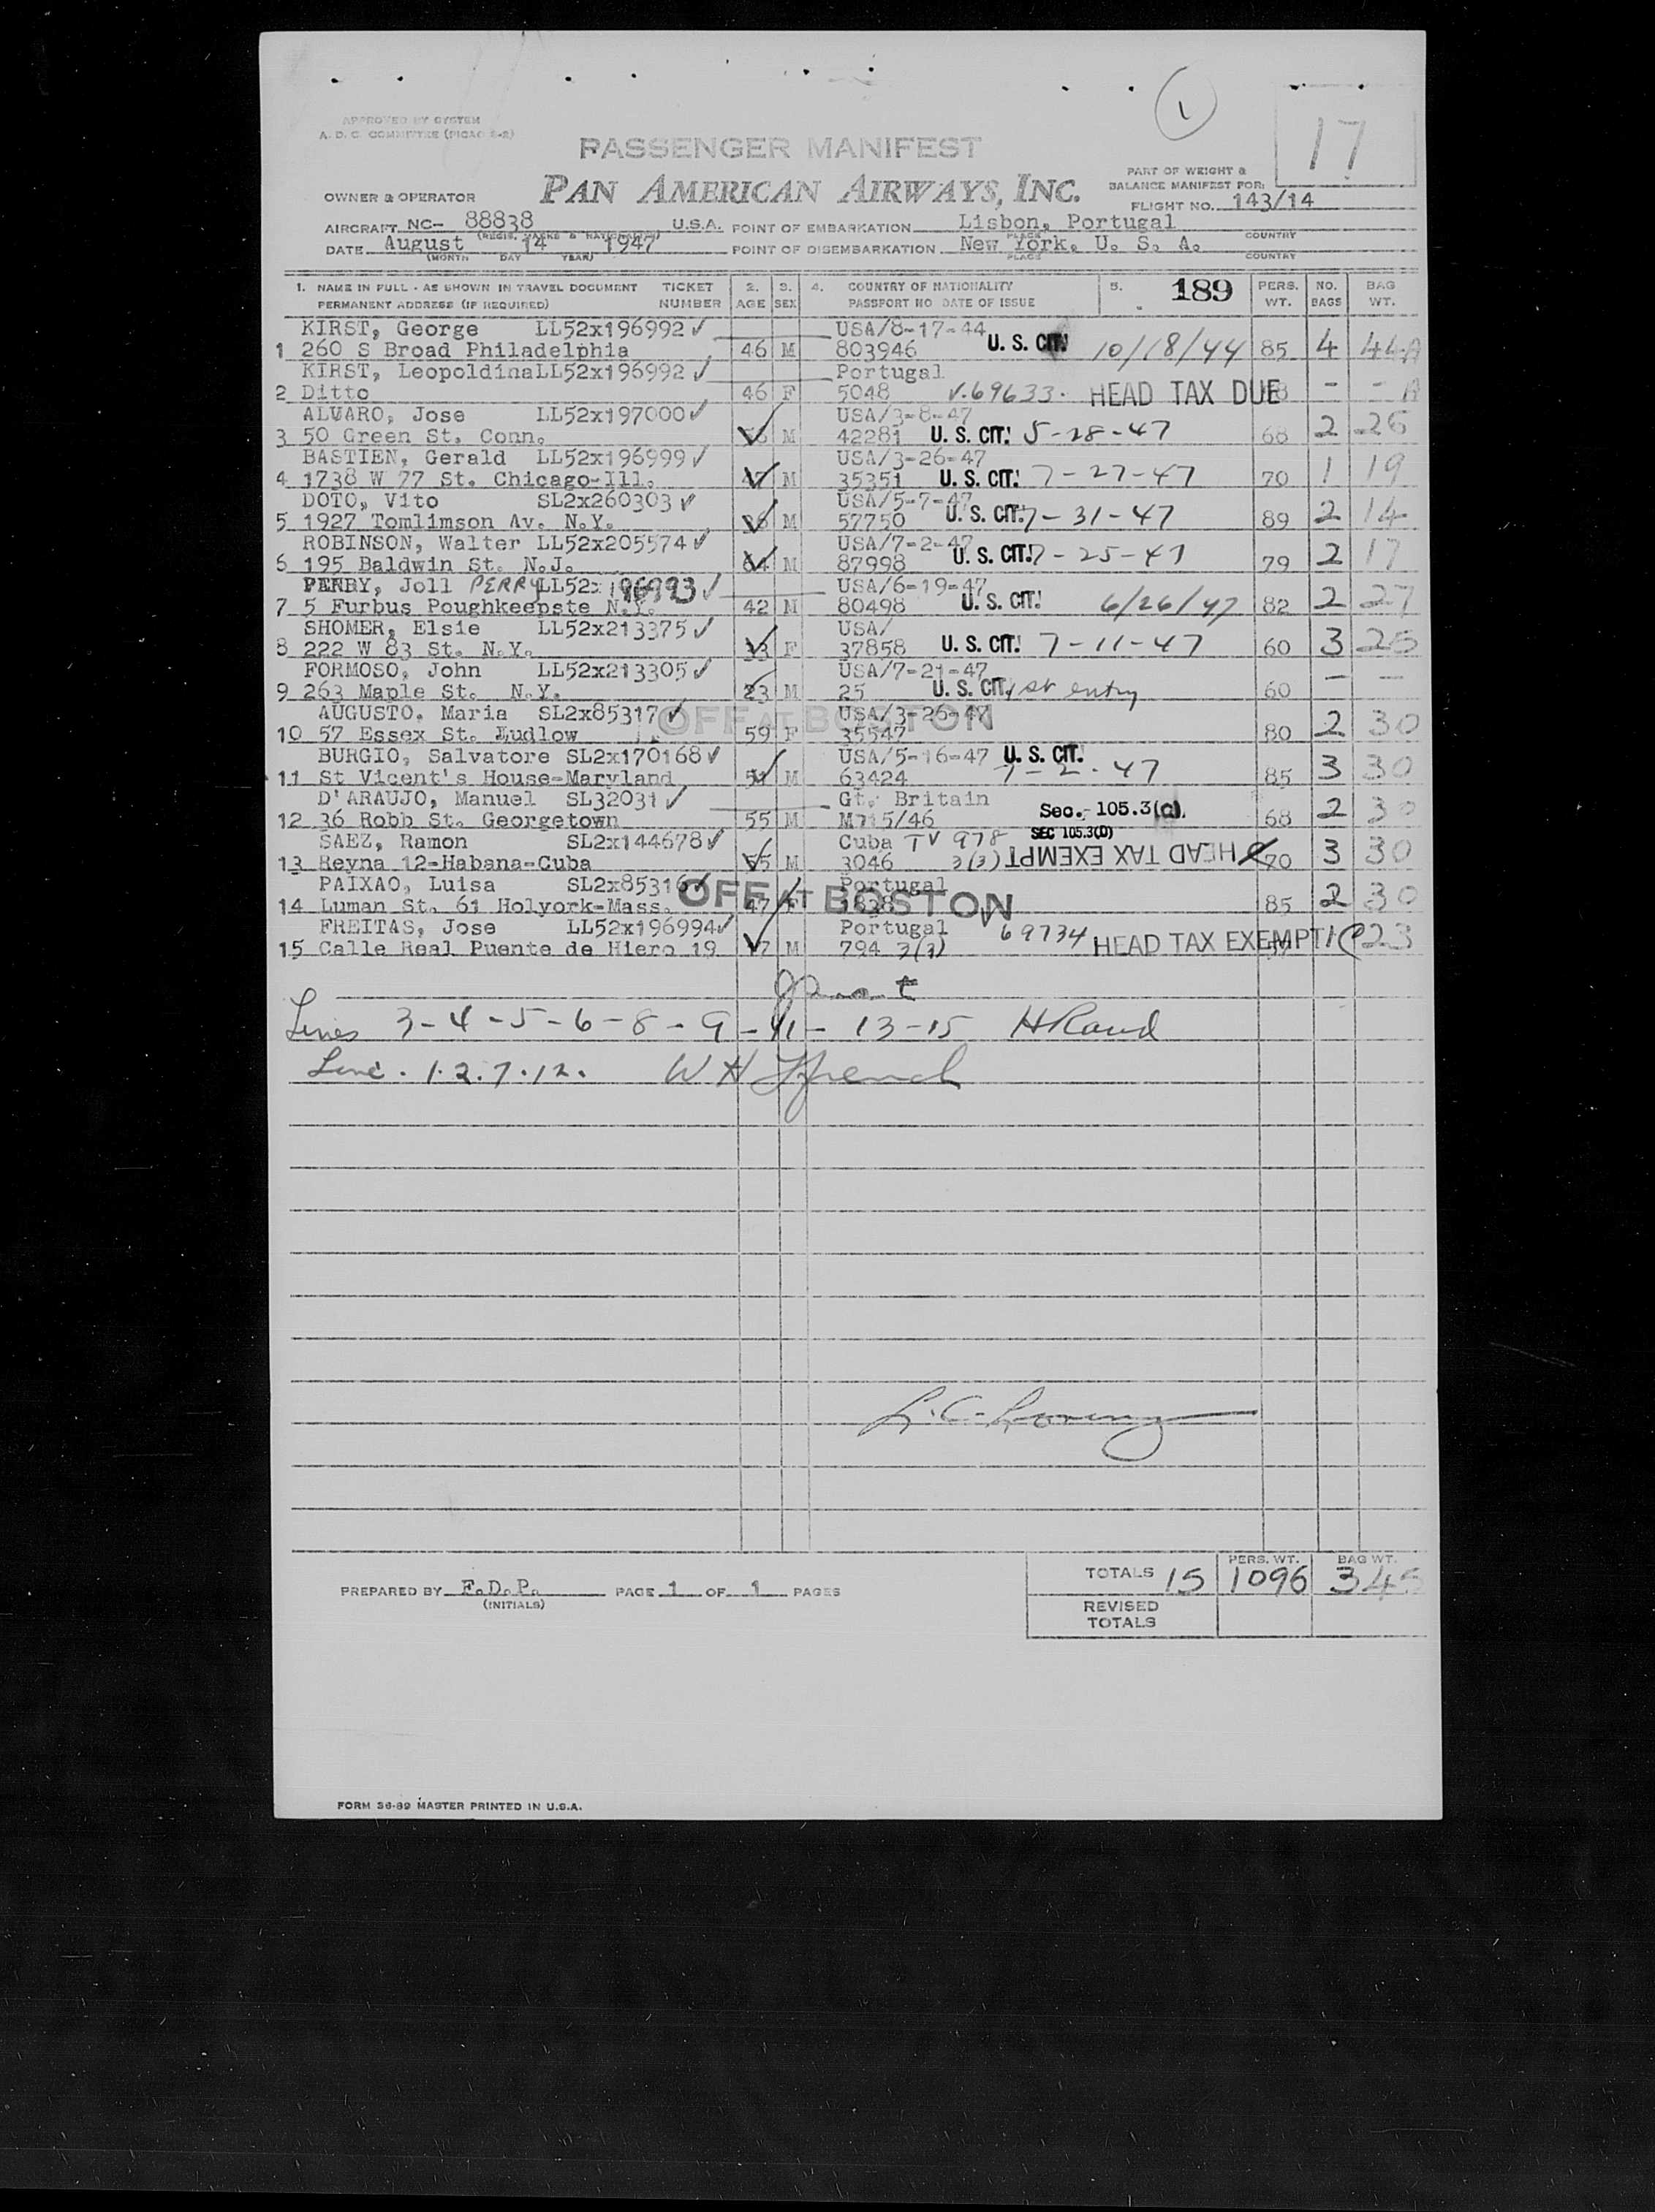 1
17
APPROVED BY SYSTEM
A. D. C. COMMITTEE (PICAO 2-2)
PASSENGER MANIFEST
PAN AMERICAN AIRWAYS, INC.
PART OF WEIGHT &
BALANCE MANIFEST FOR:
OWNER & OPERATOR
FLIGHT NO. 143/14
AIRCRAFT NC- 88838 U.S.A. POINT OF EMBARKATION Lisbon, Portugal
PLACE COUNTRY
DATE August 14 1947 POINT OF DISEMBARKATION New York, U. S. A.
(MONTH DAY YEAR) PLACE COUNTRY
1. NAME IN FULL - AS SHOWN IN TRAVEL DOCUMENT TICKET 2. 3. 4. COUNTRY OF NATIONALITY 5. 189 PERS. NO. BAG
PERMANENT ADDRESS (IF REQUIRED) NUMBER AGE SEX PASSPORT NO DATE OF ISSUE WT. BAGS WT.
KIRST, George LL52x196992 ✓ USA/8-17-44
1 260 S Broad Philadelphia 46 M 803946 U. S. CIT. 10/18/44 85 4 44 A
KIRST, Leopoldina LL52x196992 ✓ Portugal
2 Ditto 46 F 5048 V.69633. HEAD TAX DUE - - A
ALVARO, Jose LL52x197000 ✓ USA/3-8-47
3 50 Green St. Conn. M 42281 U. S. CIT. 5-28-47 68 2 26
BASTIEN, Gerald LL52x196999 ✓ USA/3-26-47
4 1738 W 77 St. Chicago-Ill. M 35351 U. S. CIT. 7-27-47 70 1 19
DOTO, Vito SL2x260303 ✓ USA/5-7-47
5 1927 Tomlimson Av. N.Y. M 57750 U. S. CIT. 7-31-47 89 2 14
ROBINSON, Walter LL52x205574 ✓ USA/7-2-47
6 195 Baldwin St. N.J. M 87998 U. S. CIT. 7-25-47 79 2 17
Joll PERRY LL52x 196993 ✓ USA/6-19-47
7 5 Furbus Poughkeepste N.Y. 42 M 80498 U. S. CIT. 6/26/47 82 2 27
SHOMER, Elsie LL52x213375 ✓ USA/
8 222 W 83 St. N.Y. 33 F 37858 U. S. CIT. 7-11-47 60 3 25
FORMOSO, John LL52x213305 ✓ USA/7-21-47
9 263 Maple St. N.Y. 23 M 25 U. S. CIT. 1st entry 60 - -
AUGUSTO, Maria SL2x85317 ✓ OFF AT BOSTON USA/3-26-47
10 57 Essex St. Ludlow 59 F 35547 80 2 30
BURGIO, Salvatore SL2x170168 ✓ USA/5-16-47 U. S. CIT.
11 St Vicent's House-Maryland 51 M 63424 7-2-47 85 3 30
D'ARAUJO, Manuel SL32031 ✓ Gt. Britain Sec. 105.3(c).
12 36 Robb St. Georgetown 55 M M715/46 68 2 30
SAEZ, Ramon SL2x144678 ✓ Cuba TV 978 SEC 105.3(D)
13 Reyna 12-Habana-Cuba 55 M 3046 3(3) HEAD TAX EXEMPT 70 3 30
PAIXAO, Luisa SL2x85316 ✓ OFF AT BOSTON Portugal
14 Luman St. 61 Holyork-Mass. 47 F 85 2 30
FREITAS, Jose LL52x196994 ✓ Portugal V 69734
15 Calle Real Puente de Hiero 19 M 794 3(3) HEAD TAX EXEMPT 1 23
Lines 3-4-5-6-8-9-11-13-15 H Rand
Line. 1.2.7.12. W H French
TOTALS 15 PERS. WT. 1096 BAG WT. 345
PREPARED BY F.D.P. PAGE 1 OF 1 PAGES
(INITIALS)
REVISED
TOTALS
FORM 36-89 MASTER PRINTED IN U.S.A.